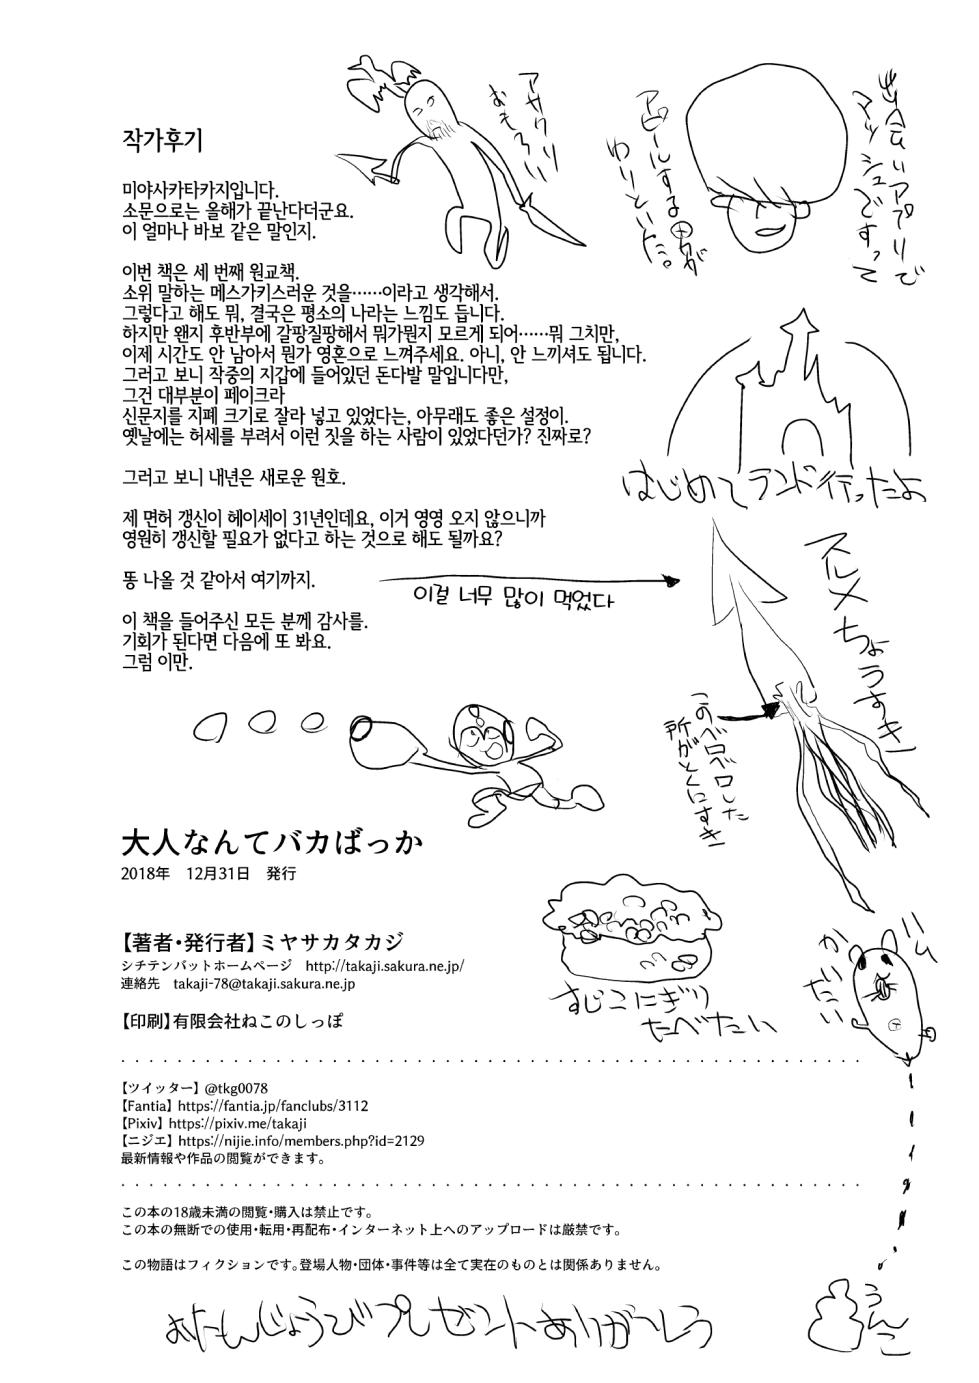 작가후기
미야사카타카지입니다.
소문으로는 올해가 끝난다더군요.
이 얼마나 바보 같은 말인지.
이번 책은 세 번째 원교책.
소위 말하는 메스가키스러운 것을……이라고 생각해서.
그렇다고 해도 뭐, 결국은 평소의 나라는 느낌도 듭니다.
하지만 왠지 후반부에 갈팡질팡해서 뭐가뭔지 모르게 되어……뭐 그치만,
이제 시간도 안 남아서 뭔가 영혼으로 느껴주세요. 아니, 안 느끼셔도 됩니다.
그러고 보니 작중의 지갑에 들어있던 돈다발 말입니다만,
그건 대부분이 페이크라
신문지를 지폐 크기로 잘라 넣고 있었다는, 아무래도 좋은 설정이.
옛날에는 허세를 부려서 이런 짓을 하는 사람이 있었다던가? 진짜로?
그러고 보니 내년은 새로운 원호.
제 면허 갱신이 헤이세이 31년인데요, 이거 영영 오지 않으니까
영원히 갱신할 필요가 없다고 하는 것으로 해도 될까요?
똥 나올 것 같아서 여기까지.
이걸 너무 많이 먹었다
이 책을 들어주신 모든 분께 감사를.
기회가 된다면 다음에 또 봐요.
그럼 이만.
出会いアプリで
マッシュですって
アピールする男が
わりといた。
はじめてランド行ったよ
スルメちょうすき
このベロベロした
所がとくにすき
大人なんてバカばっか
2018年 12月31日 発行
【著者・発行者】ミヤサカタカジ
シチテンバットホームページ http://takaji.sakura.ne.jp/
連絡先 takaji-78@takaji.sakura.ne.jp
【印刷】有限会社ねこのしっぽ
すじこにぎり
たべたい
ハム
かいたい
【ツイッター】@tkg0078
【Fantia】https://fantia.jp/fanclubs/3112
【Pixiv】https://pixiv.me/takaji
【ニジエ】https://nijie.info/members.php?id=2129
最新情報や作品の閲覧ができます。
この本の18歳未満の閲覧・購入は禁止です。
この本の無断での使用・転用・再配布・インターネット上へのアップロードは厳禁です。
この物語はフィクションです。登場人物・団体・事件等は全て実在のものとは関係ありません。
うんこ
おたんじょうびプレゼントありがとう